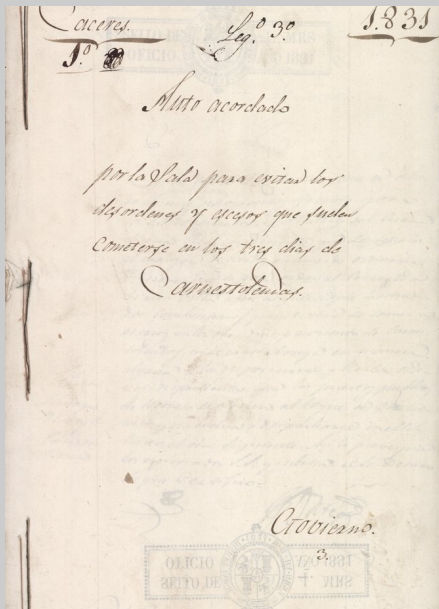 Caceres. Leg.º 3º 1.831
1.º
Auto acordado
por la Sala para evitar los
desordenes y escesos que suelen
cometerse en los tres dias de
Carnestolendas.
Gobierno.
3.